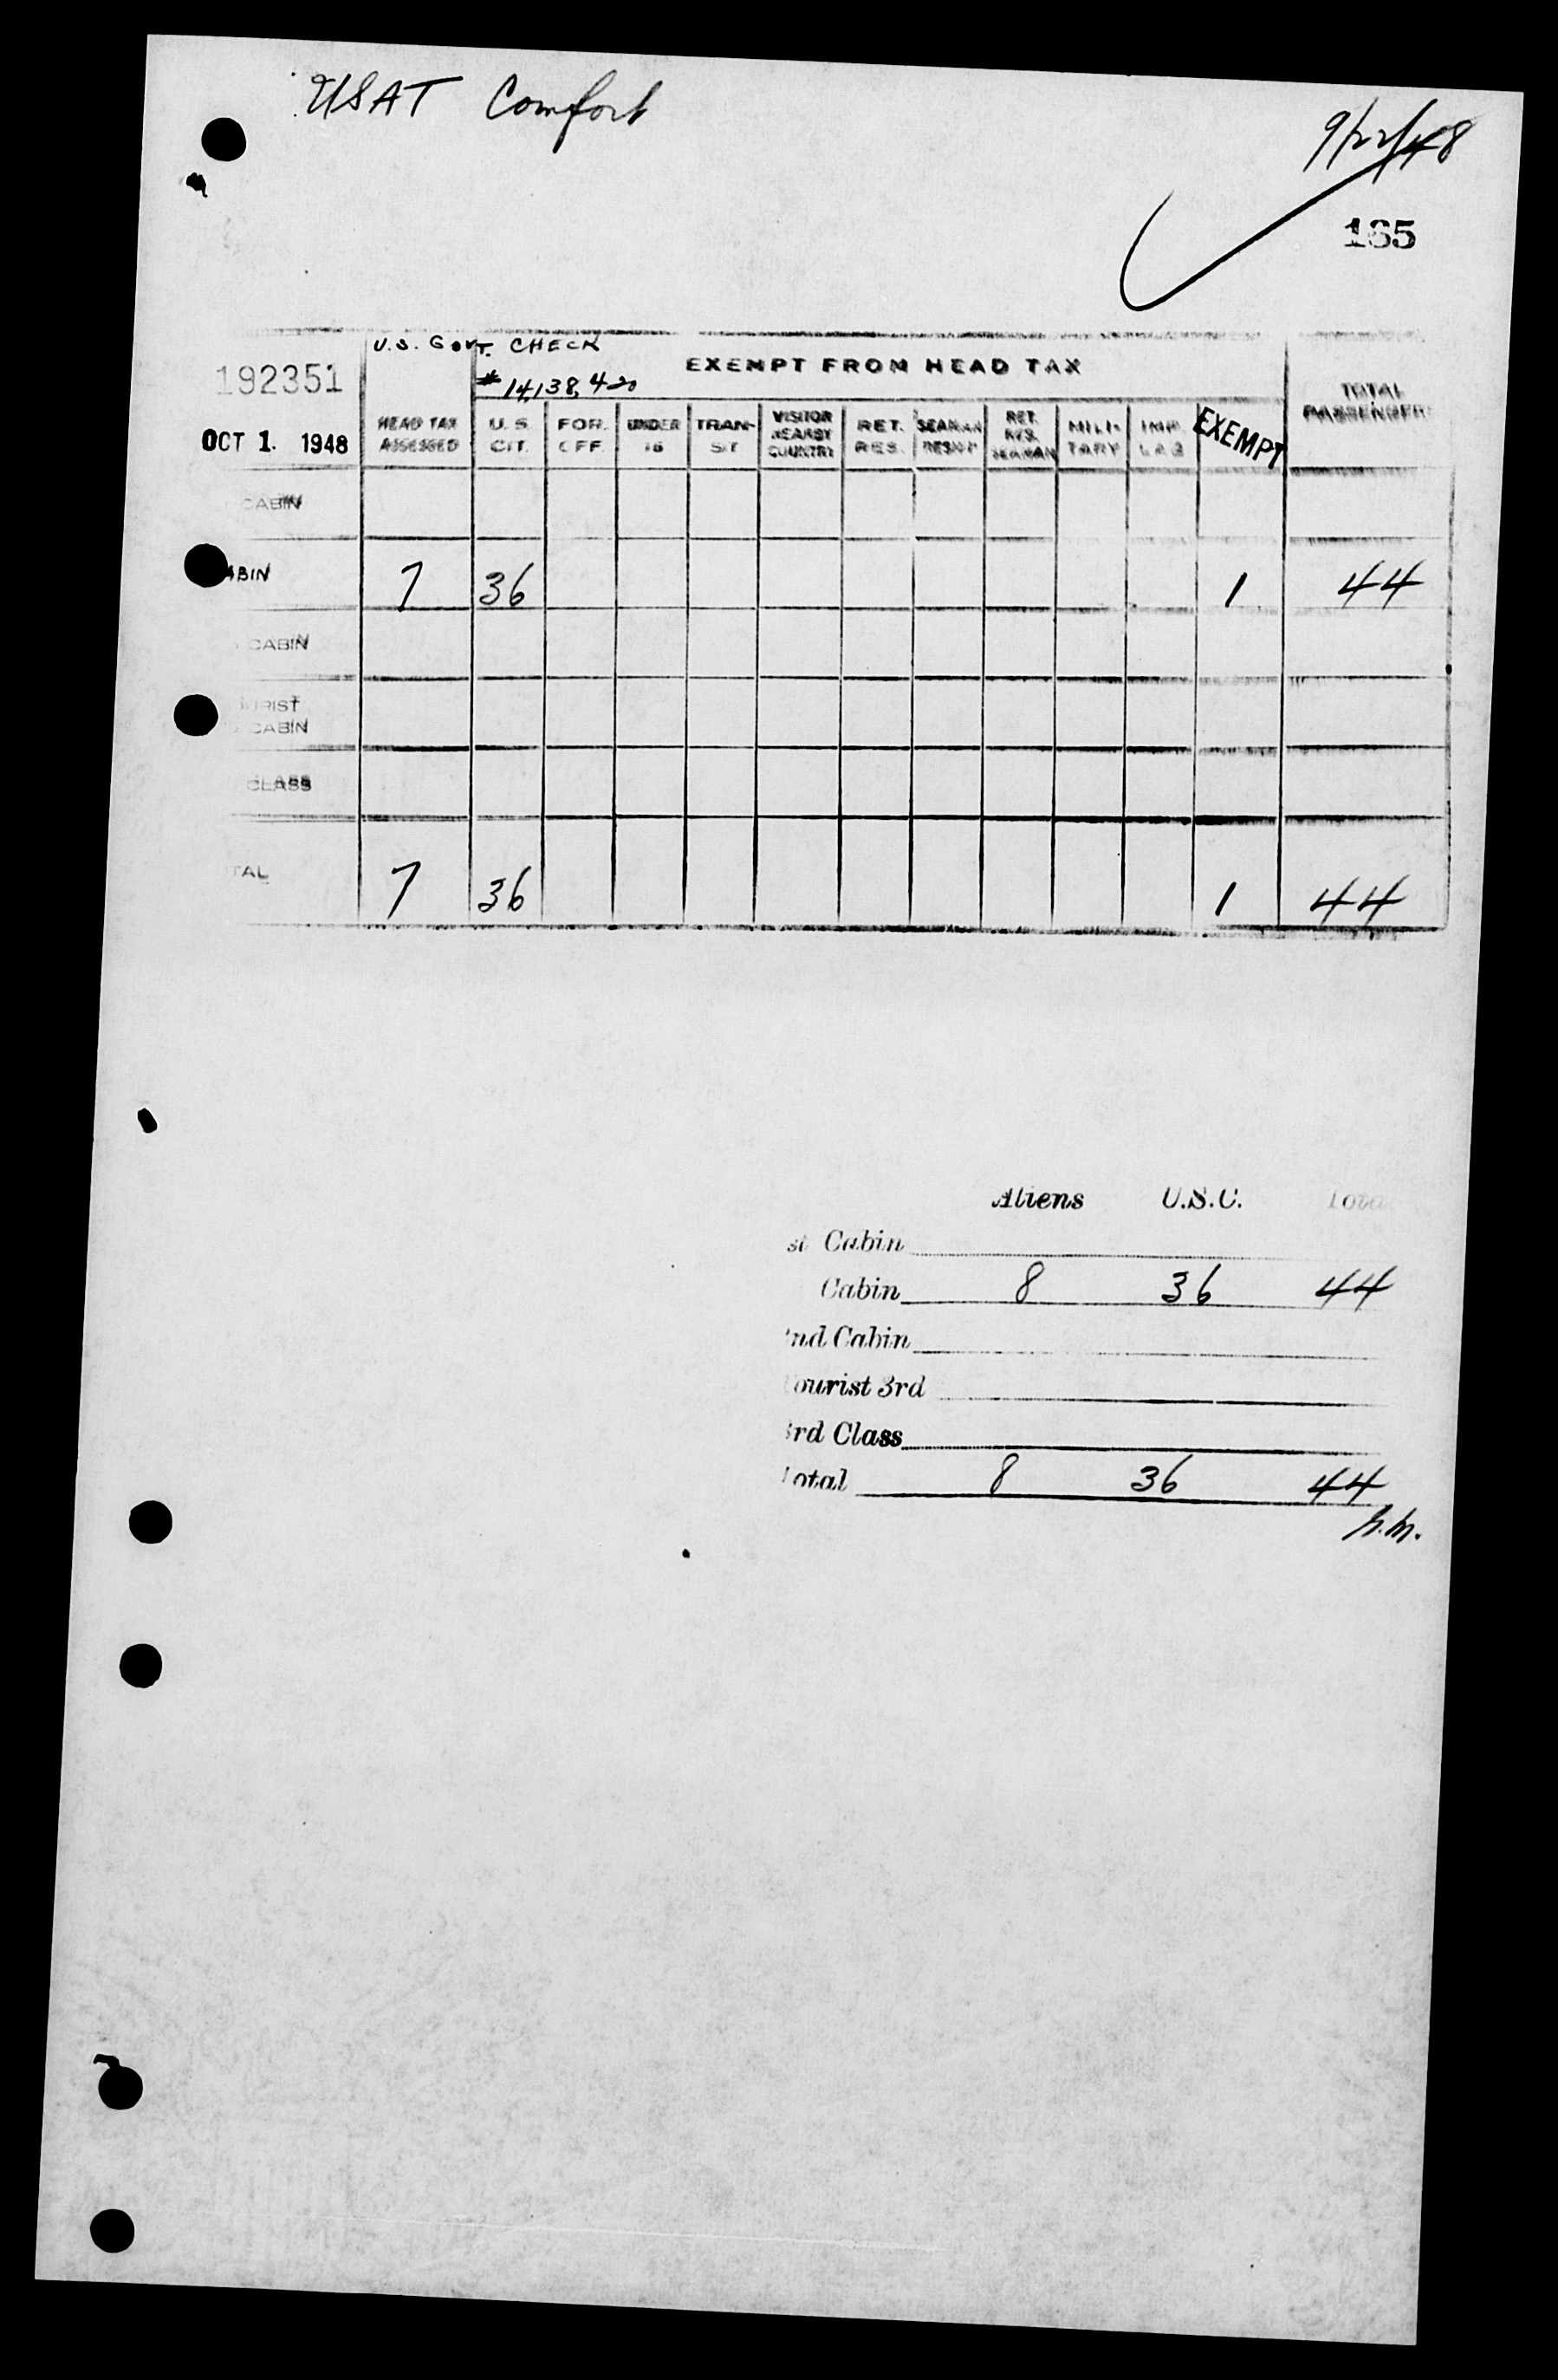 USAT Comfort
9/22/48
165
U.S. GOVT. CHECK
192351
# 14,138,420
EXEMPT FROM HEAD TAX
TOTAL PASSENGERS
OCT 1. 1948
HEAD TAX ASSESSED
U. S. CIT.
FOR. OFF.
UNDER 16
TRAN-SIT
VISITOR NEARBY COUNTRY
RET. RES.
SEAMAN
RET. RES. SEAMAN
MILI-TARY
IMP. LAB
EXEMPT
CABIN
ABIN 7 36 1 44
CABIN
URIST
CABIN
CLASS
TAL 7 36 1 44
Aliens U.S.C. Tota
st Cabin
Cabin 8 36 44
nd Cabin
ourist 3rd
rd Class
otal 8 36 44